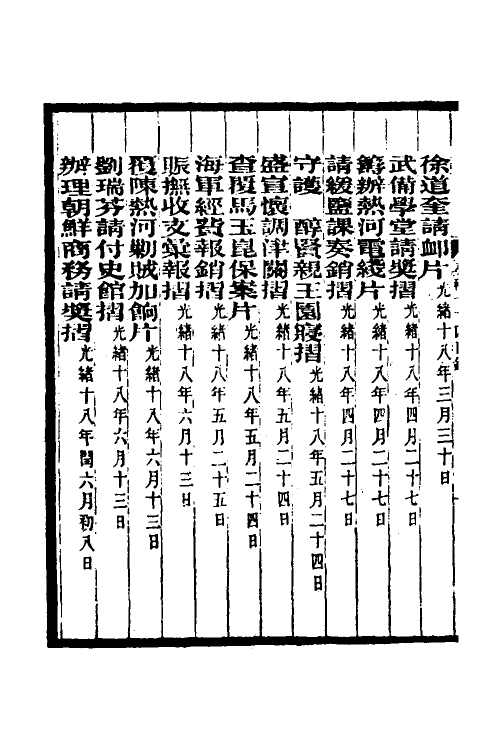 徐道奎請卹片光緒十八年三月三十日
武備學堂請奬摺光緒十八年四月二十七日
籌辦熱河電綫片光緒十八年四月二十七日
請緩鹽課奏銷摺光緒十八年四月二十七日
守護 醇賢親王園寢摺光緒十八年五月二十四日
盛宣懷調津關摺光緒十八年五月二十四日
查覆馬玉崑保案片光緒十八年五月二十四日
海軍經費報銷摺光緒十八年五月二十五日
賑撫收支彙報摺光緒十八年六月十三日
覆陳熱河勦賊加餉片光緒十八年六月十三日
劉瑞芬請付史館摺光緒十八年六月十三日
辦理朝鮮商務請奬摺光緒十八年閏六月初八日